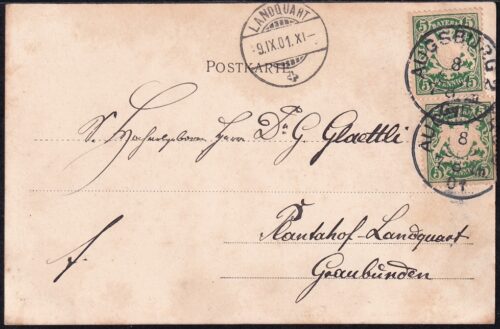 LANDQUART
-9.IX.01.XI-
5 BAYERN 5
AUGSBURG 2
8
9
POSTKARTE
AUGSBURG
8
9
01
S. Hochwohlgeboren Herrn Dr. G Glaettli
Plantahof-Landquart
f.
Graubünden